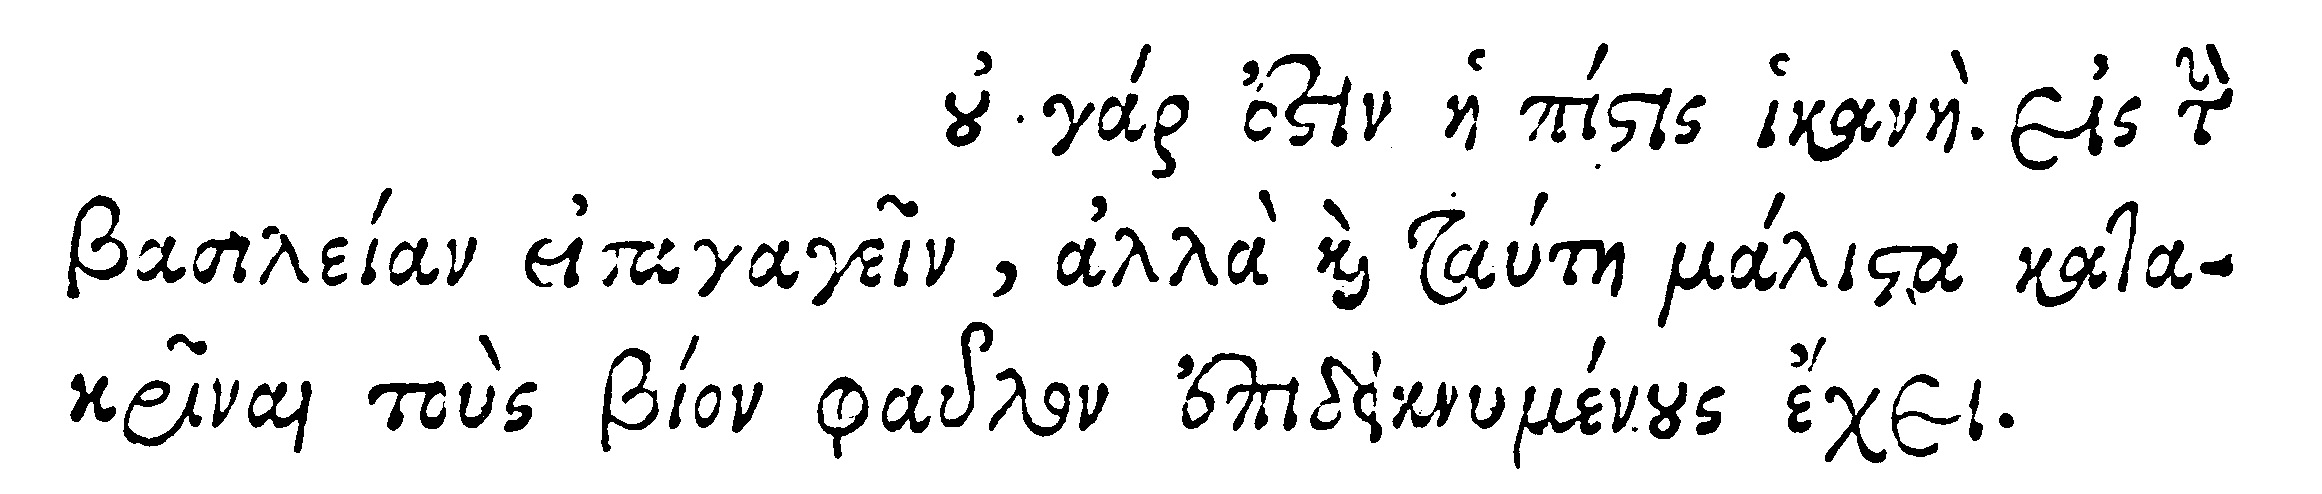 οὐ γάρ ἐστιν ἡ πίστις ἱκανὴ. εἰς τὴν
βασιλείαν εἰσαγαγεῖν, ἀλλὰ καὶ ταύτη μάλιστα κατα-
κρῖναι τοὺς βίον φαῦλον ἐπιδεικνυμένους ἔχει.